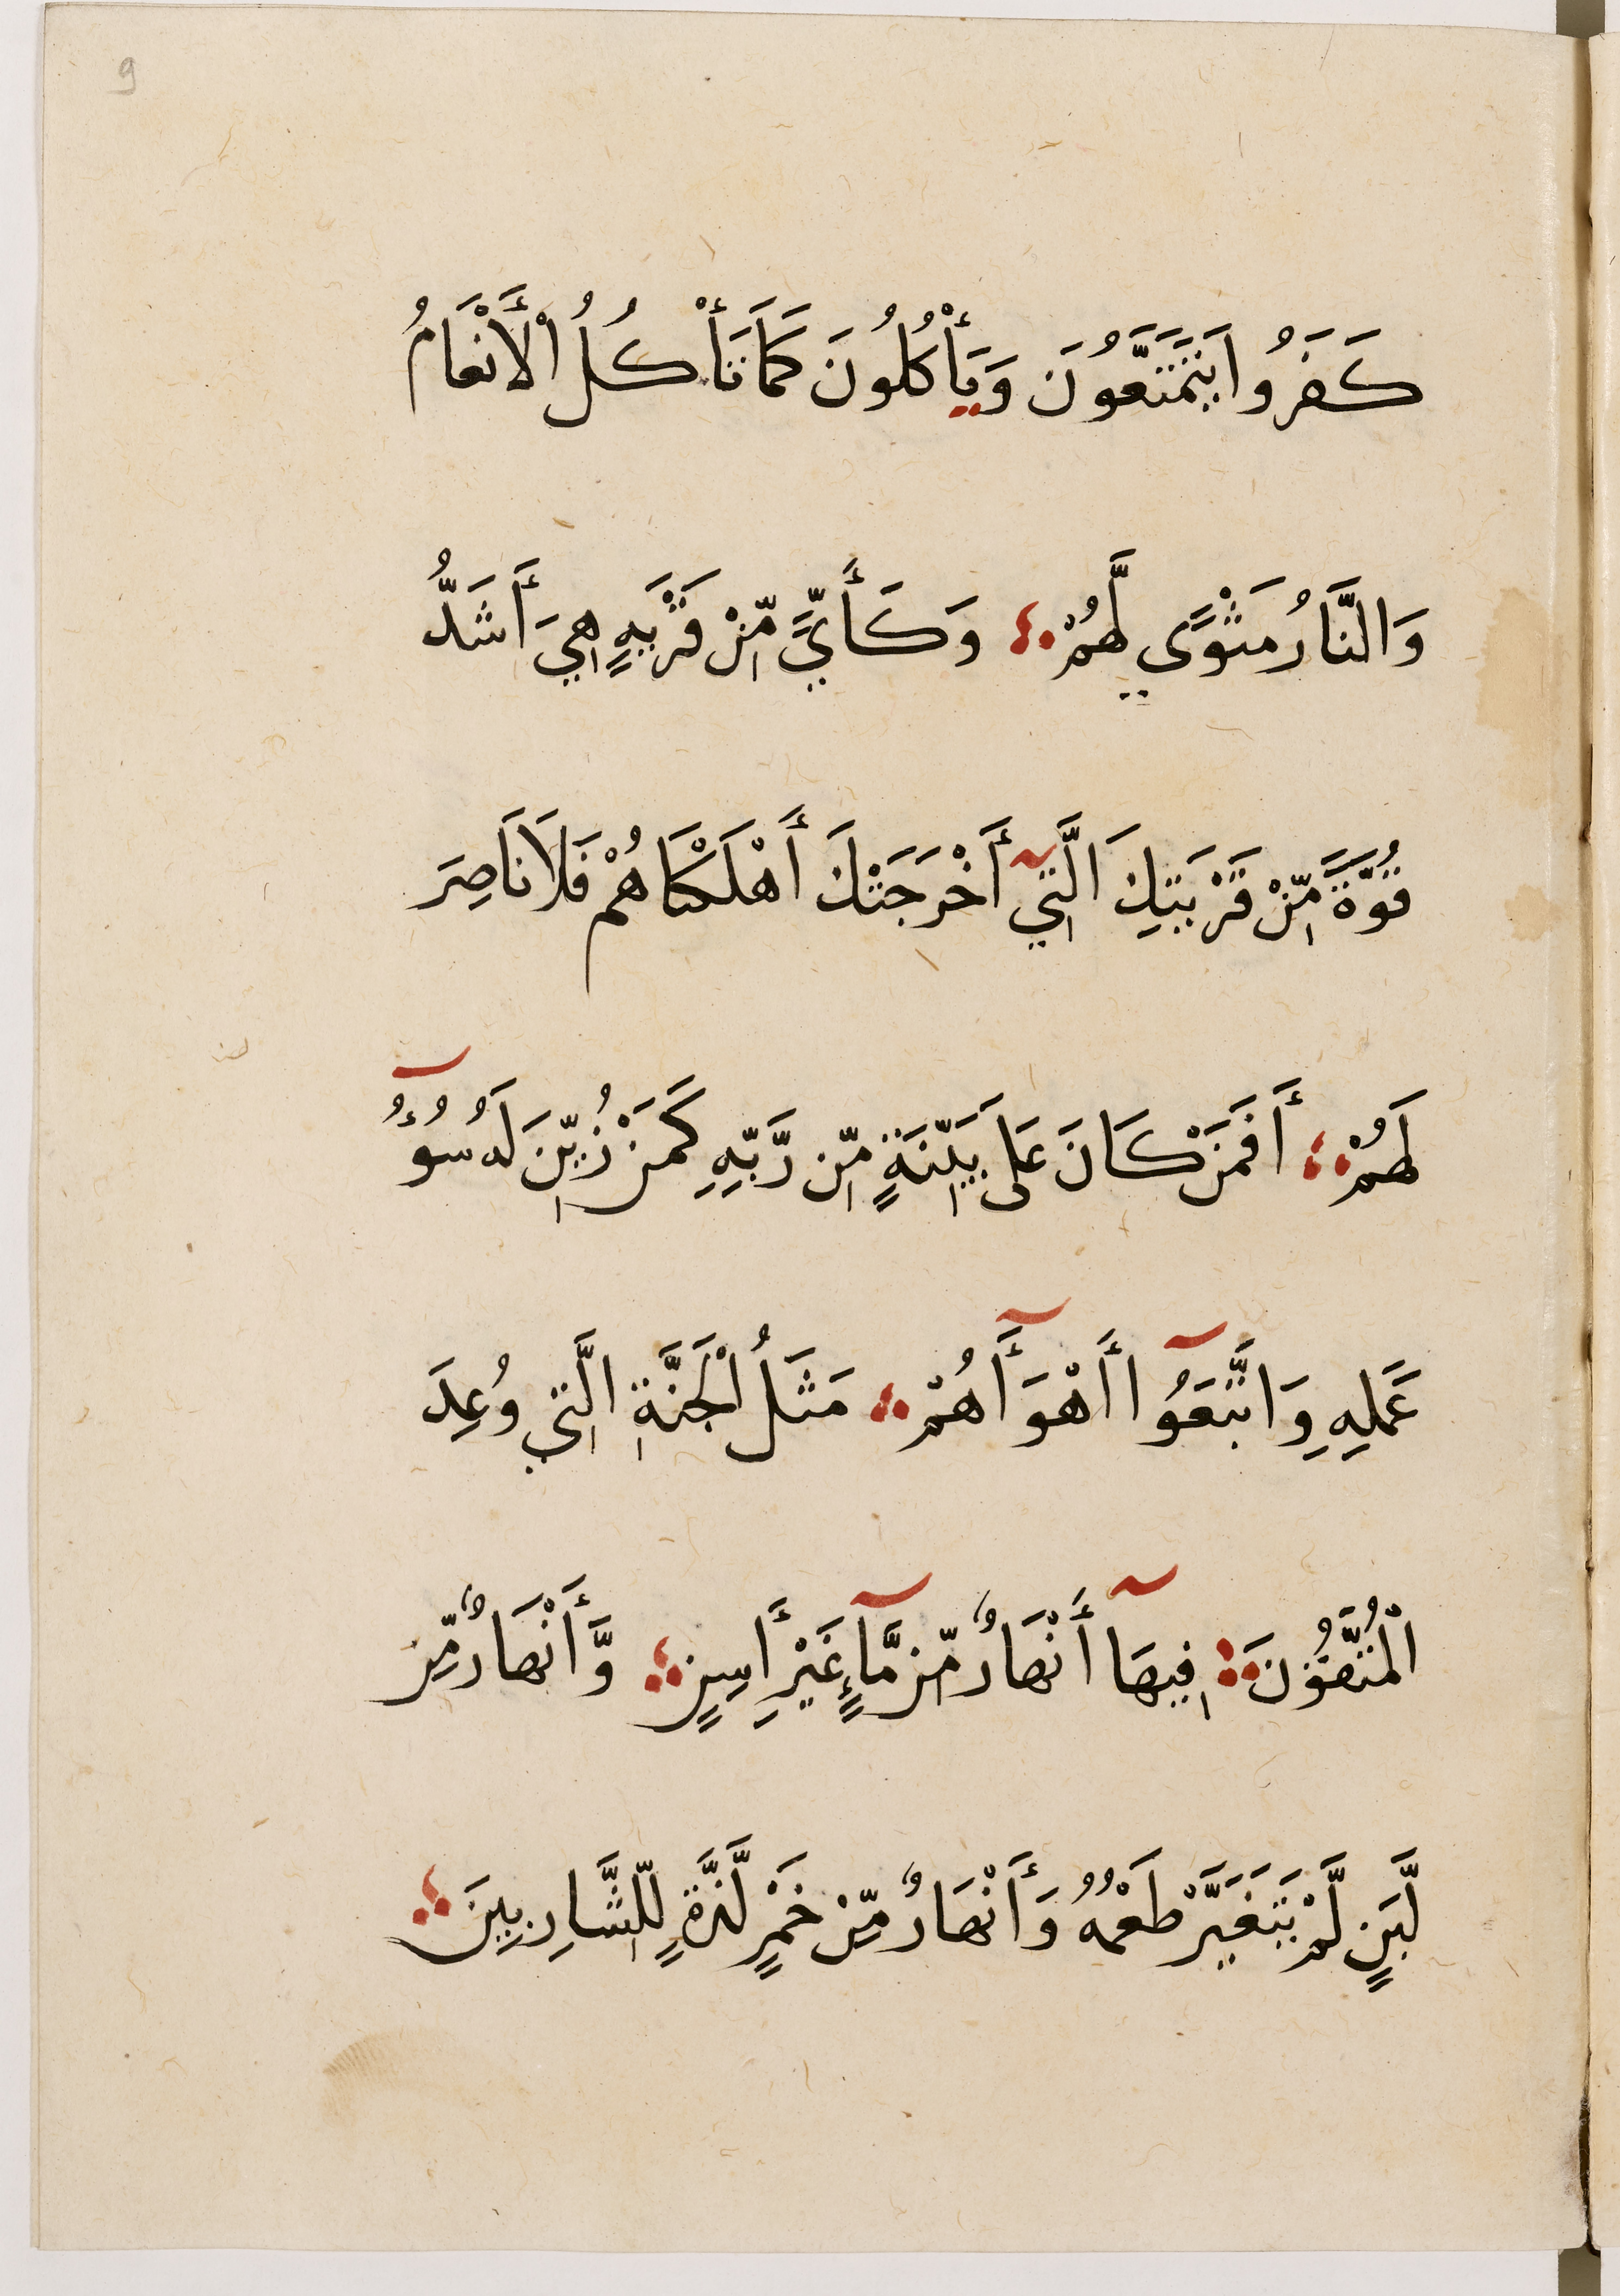 9
كَفَرُوا يَتَمَتَّعُونَ وَيَأْكُلُونَ كَمَا تَأْكُلُ الْأَنْعَامُ
وَالنَّارُ مَثْوًى لَّهُمْ وَكَأَيِّ مِّنْ قَرْيَةٍ هِيَ أَشَدُّ
قُوَّةً مِّنْ قَرْيَتِكَ الَّتِي أَخْرَجَتْكَ أَهْلَكْنَاهُمْ فَلَا نَاصِرَ
لَهُمْ أَفَمَنْ كَانَ عَلَى بَيِّنَةٍ مِّن رَّبِّهِ كَمَنْ زُيِّنَ لَهُ سُوءُ
عَمَلِهِ وَاتَّبَعُوا أَهْوَآءَهُمْ مَثَلُ الْجَنَّةِ الَّتِي وُعِدَ
الْمُتَّقُونَ فِيهَآ أَنْهَارٌ مِّن مَّآءٍ غَيْرِ أَسِنٍ وَّأَنْهَارٌ مِّن
لَّبَنٍ لَّمْ يَتَغَيَّرْ طَعْمُهُ وَأَنْهَارٌ مِّنْ خَمْرٍ لَّذَّةٍ لِّلشَّارِبِينَ